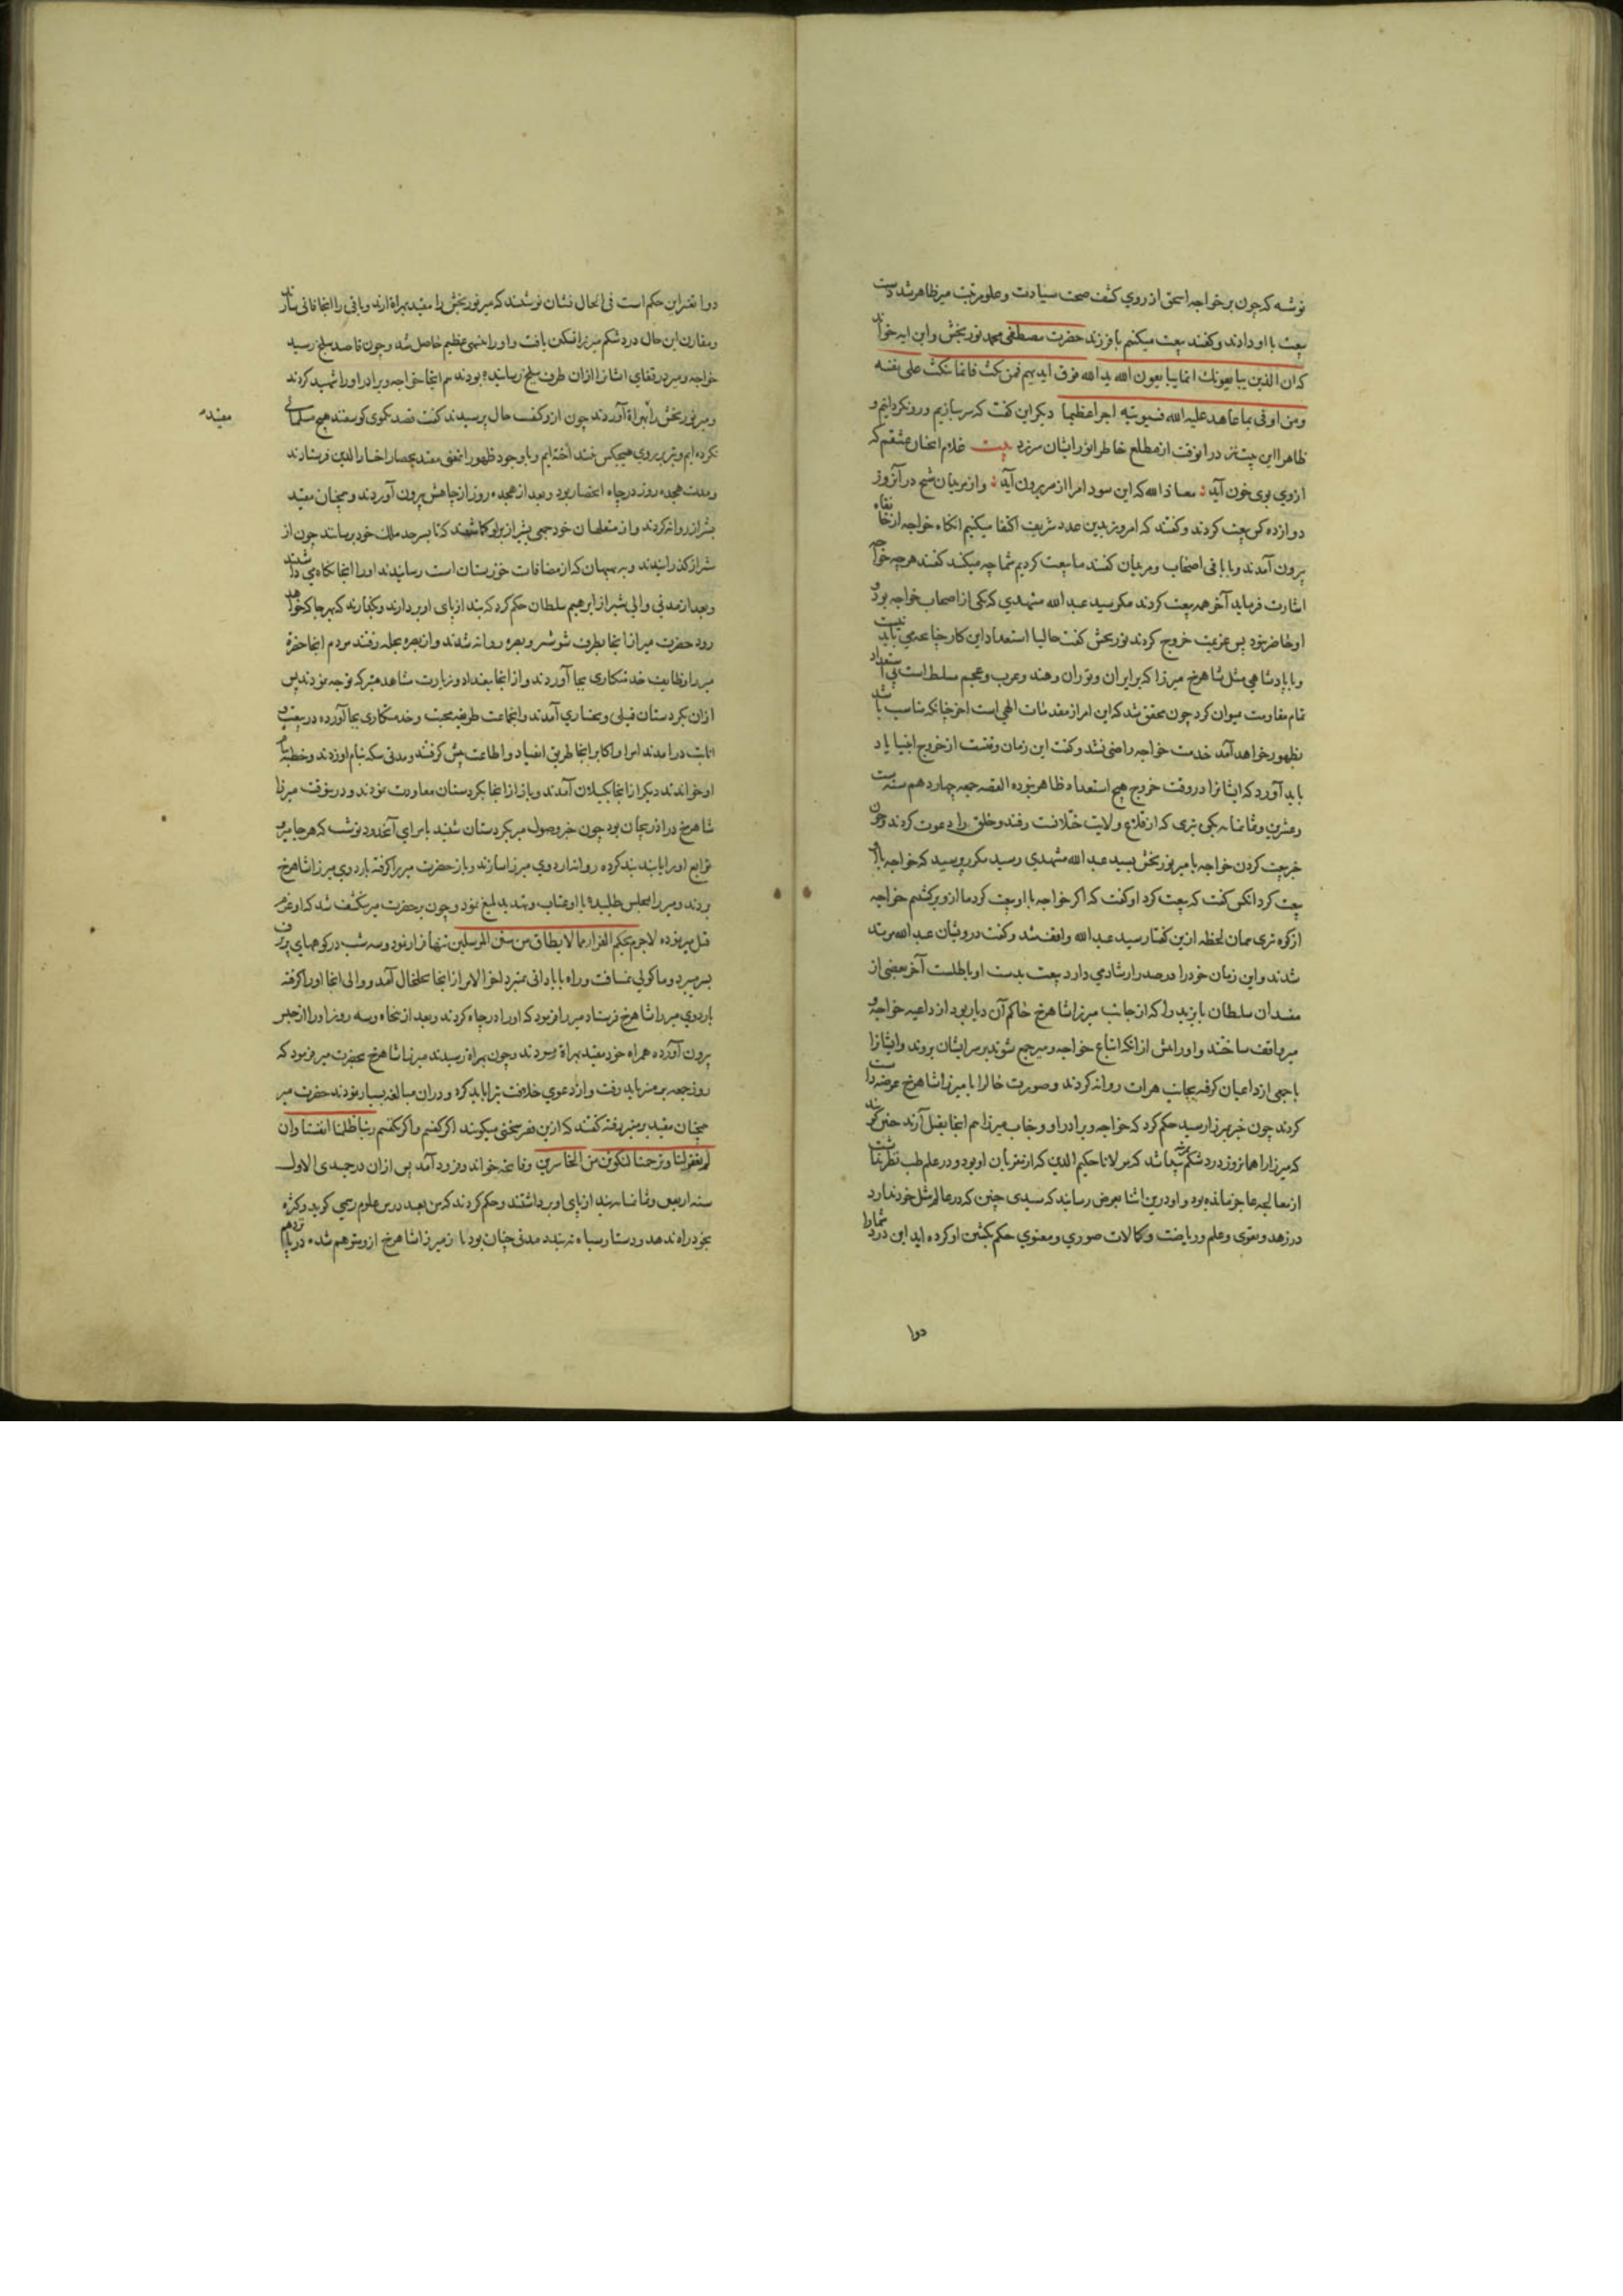 نوشته که چون بر خواجه اسحق از روی کشف صحت سیادت و علو مرتبت میر ظاهر شد دست
بیعت با او دادند و گفتند بیعت میکنیم با فرزند حضرت مصطفی محمد نوربخش و این ایه خواند
که ان الذین یبایعونک انما یبایعون الله ید الله فوق ایدیهم فمن نکث فانما ینکث علی نفسه
ومن اوفی بما عاهد علیه الله فسیوتیه اجرا عظیما دیگر این گفت که سر بازیم و رو نگردانیم و
ظاهرا این بیت نیز در آنوقت از مطلع خاطر انور ایشان سر زد بیت غلام عشقم که
ازوی بوی خون آید معاذ الله که این سودا مرا از سر برون آید و از مریدان شیخ در آنروز
دوازده کس بیعت کردند و گفتند که امروز بدین عدد شریف اکتفا میکنیم انکاه خواجه از خانقاه
برون آمدند و با باقی اصحاب و مریدان گفتند ما بیعت کردیم شما چه میکنید گفتند هر چه خواجه
اشارت فرماید آخر همه بیعت کردند مگر سید عبد الله مشهدی که یکی از اصحاب خواجه بود و
او حاضر نبود پس عزیمت خروج کردند نوربخش گفت حالیا استعداد این کار چنانچه می باید نیست
و با پادشاهی مثل شاهرخ میرزا که بر ایران و توران و هند و عرب و عجم مسلط است بی استعداد
تمام مقاومت میتوان کرد چون محقق شد که این امر از مقدرات الهی است اخر چنانکه مناسب باشد
بظهور خواهد آمد خدمت خواجه راضی نشد و گفت این زمان وقتست از خروج انبیا یاد
باید آورد که ایشانرا در وقت خروج هیچ استعداد ظاهر نبوده القصه جمعه چهاردهم سنه ست
وعشرین وثمانمایه بکوه تیری که از قلاع ولایت ختلانست رفتند و خلق را دعوت کردند و چون
خبر بیعت کردن خواجه با میر نوربخش بسید عبد الله مشهدی رسید مکرر پرسید که خواجه با او
بیعت کرد انکس گفت که بیعت کرد او گفت که اگر خواجه با او بیعت کرد ما ازو برگشتیم خواجه
از کوه تیری همان لحظه ازین گفتار سید عبد الله واقف شد و گفت درویشان عبد الله مرتد
شدند و این زمان خود را در صدر ارشادی دارد بیعت بدست او باطلست آخر بعضی از
مفسدان سلطان بایزید را که از جانب میرزا شاهرخ حاکم آن دیار بود از داعیه خواجه و
میر واقف ساختند و او را پیش از انکه اتباع خواجه و میر جمع شوند بر سر ایشان بروند و ایشانرا
با جمعی از داعیان گرفته بجانب هرات روانه کردند و صورت حال را با میرزا شاهرخ عرضه داشت
کردند چون خبر بمیرزا رسید حکم کرد که خواجه و برادر او و جناب میر را هم آنجا بقتل آرند چنین گویند
که میرزا را همانروز درد شکم پیدا شد که مولانا حکیم الدین که از مقربان او بود و در علم طب نظیر نداشت
از معالجه عاجز مانده بود و او در این اثنا بعرض رسانید که سیدی چنین که در عالم مثل خود ندارد
در زهد و تقوی و علم و ریاضت و کمالات صوری و معنوی حکم بکشتن او کرده اید این درد شما را
دوا
دوا تغییر این حکم است فی الحال نشان نوشتند که میر نوربخش را مقید بهراة ارند و باقی را انجا فانی سازند
ومقارن این حال درد شکم میرزا تسکین یافت و او را تنبهی عظیم حاصل شد و چون قاصد ببلخ رسید
خواجه و میر و رفقای ایشانرا از ان طرف ببلخ رسانیده بودند هم انجا خواجه و برادر او را شهید کردند
و میر نوربخش را بهراة آوردند چون ازو کیفیت حال پرسیدند گفت قصد بگوی گوسفند هیچ مسلمانی
نکرده ایم و تیر بر روی هیچکس نینداخته ایم و با وجود ظهور این معنی مقید بحصار اختیار الدین فرستادند
مقید
ومدت هجده روز در چاه انحصار بود و بعد از هجده روز از چاهش برون آوردند و همچنان مقید
بشیراز روانه کردند و از متعلقان خود جمعی بشیراز برو گماشتند که تا بسرحد ملک خود برسانند چون از
شیراز گذرانیدند و به بهبهان که از مضافات خوزستان است رسانیدند او را انجا نگاه می داشتند
و بعد از مدتی والی شیراز ابرهیم سلطان حکم کرد که بند از پای او بردارند و بگذارند که بهر جا که خواهد
رود حضرت میر از انجا بطرف شوشتر و بصره روانه شدند و از بصره بحله رفتند مردم انجا حضرت
میر را وظایف خدمتکاری بجا آوردند و از انجا ببغداد و زیارت مشاهد متبرکه توجه نمودند پس
از ان بکردستان فیلی و بختیاری آمدند و انجماعت طریقه محبت و خدمتکاری بجا آورده در بیعت و
انابت درآمدند امرا و اکابر انجا طریق انقیاد و اطاعت پیش گرفتند و مدتی سکه بنام او زدند و خطبه بنام
او خواندند دیگر از انجا بگیلان آمدند و باز از انجا بکردستان معاودت نمودند و در ینوقت میرزا
شاهرخ در اذربیجان بود چون خبر وصول میر بکردستان شنید بامرای آنحدود نوشت که هر جا میر و
توابع او را یابند بند کرده روانه اردوی میرزا سازند و باز حضرت میر را گرفته باردوی میرزا شاهرخ
بردند و میر را بمجلس طلبیده با او عتاب و تهدید بلیغ نمود و چون بر حضرت میر منکشف شد که او عزم
قتل میر نموده لاجرم بحکم الفرار مما لا یطاق من سنن المرسلین تنها فرار نمود و سه شب در کوههای پر برف
بسر میبرد و ماکولی نمی یافت و راه بابادانی نمیبرد اخر الامر از انجا بخلخال آمد و والی انجا او را گرفته
باردوی میرزا شاهرخ فرستاد میرزا فرمود که او را در چاه کردند و بعد از پنجاه و سه روز او را از حبس
برون آورده همراه خود مقید بهراة بردند و چون بهراة رسیدند میرزا شاهرخ بحضرت میر فرمود که
روز جمعه بر منبر باید رفت و از دعوی خلافت تبرا باید کرد و دران مبالغه بسیار نمودند حضرت میر
همچنان مقید بر منبر رفته گفتند که ازین فقیر سخنی میگویند اگر گفتیم و اگر نگفتیم ربنا ظلمنا انفسنا وان
لم تغفر لنا وترحمنا لنکونن من الخاسرین و فاتحه خواند و فرود آمد پس از ان در جمادی الاول
سنه اربعین وثمانمایه بند از پای او برداشتند و حکم کردند که من بعد درس علوم رسمی گوید و کثرت
بخود راه ندهد و دستار سیاه نبندد مدتی چنان بود باز میرزا شاهرخ ازو متوهم شده در